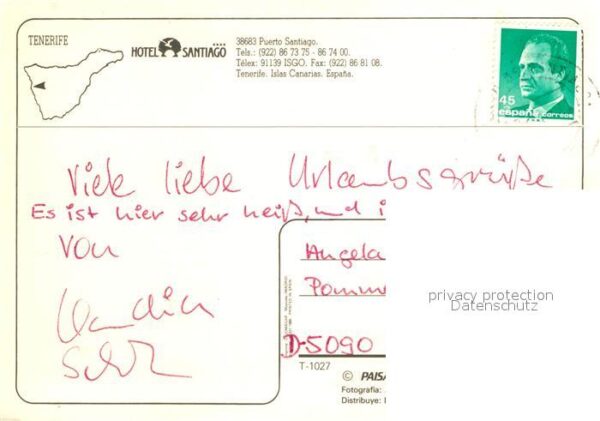 TENERIFE
HOTEL SANTIAGO
38683 Puerto Santiago.
Tels.: (922) 86 73 75 - 86 74 00.
Télex: 91139 ISGO. Fax: (922) 86 81 08.
Tenerife. Islas Canarias. España.
45
españa correos
Viele liebe Urlaubsgrüße
Es ist hier sehr heiß, und i
von
Claudia
Angela
Pomm
privacy protection
Datenschutz
D-5090
T-1027
© PAISA
Fotografía:
Distribuye: